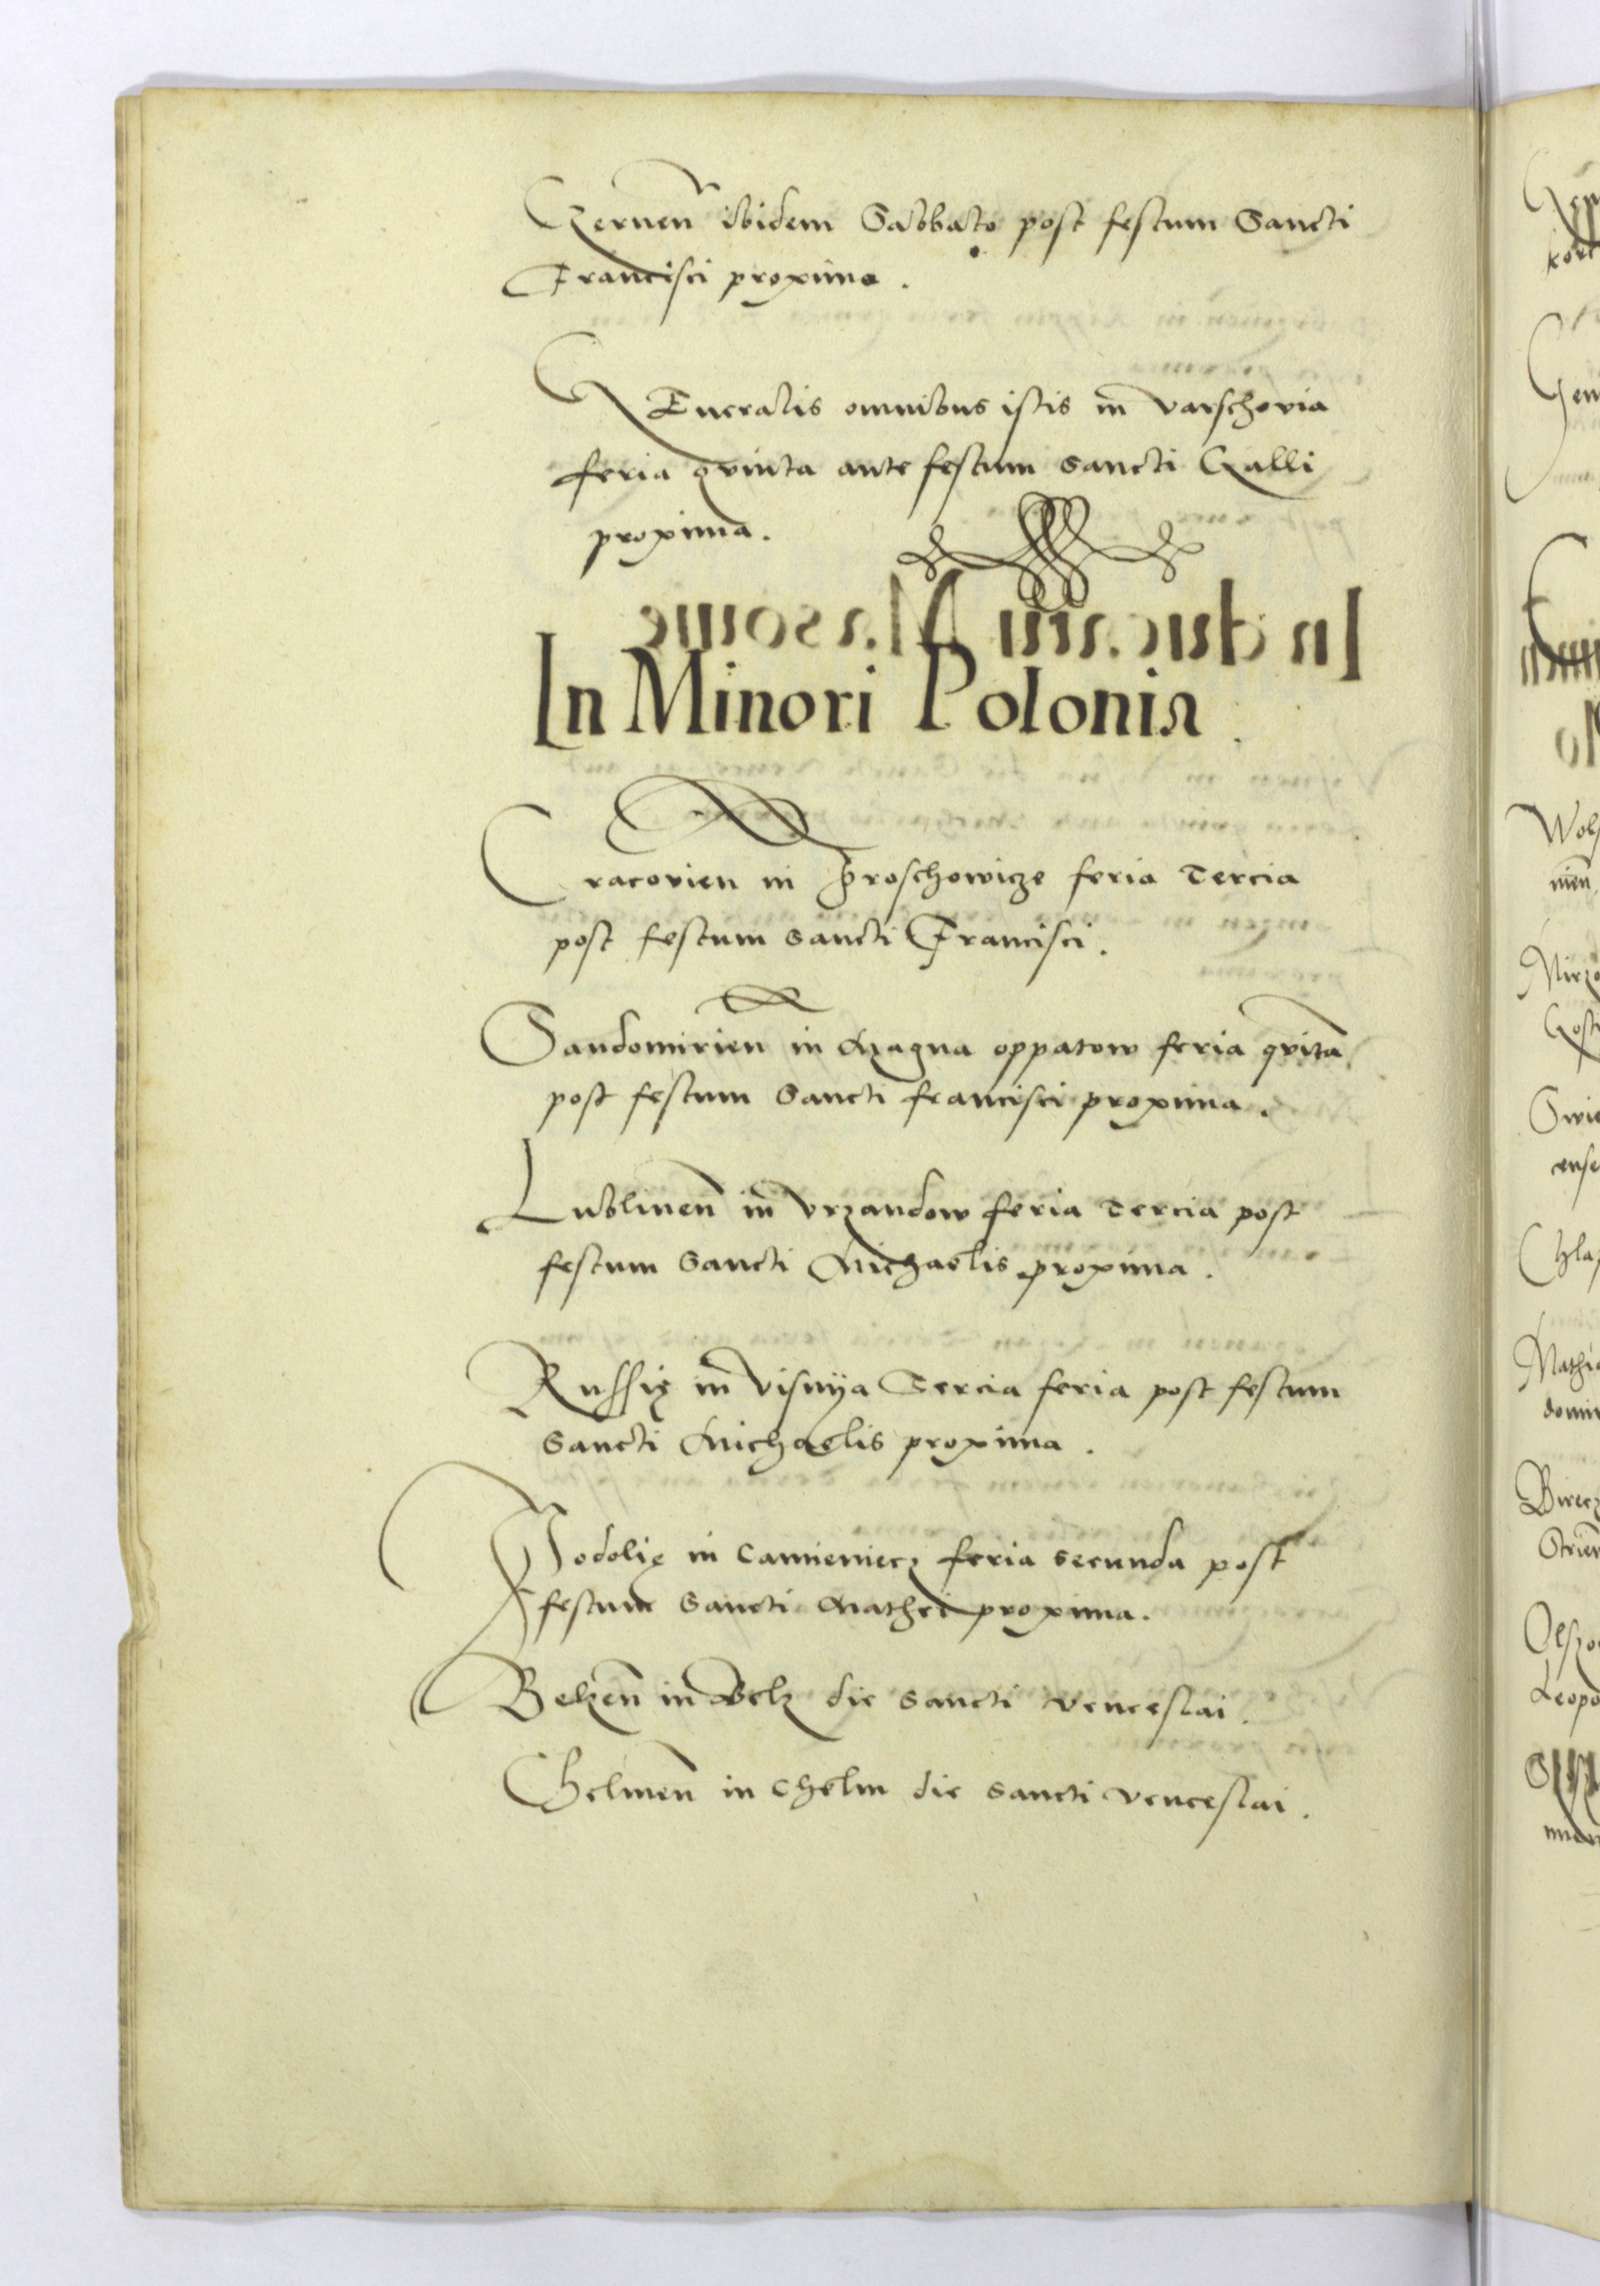 Czernen̄ ibidem Sabbato post festum Sancti
Francisci proxima.
GEneralis omnibus istis in̄ varschovia
feria qvinta ante festum sancti Galli
proxima.
In Minori Polonia
Cracovien in Proschowicze feria Tercia
post festum sancti Francisci.
Sandomirien̄ in Magna oppatow feria qvi̅ta
post festum Sancti francisci proxima.
Lublinen̄ in̄ Vrzandow feria Tercia post
festum Sancti Michaelis proxima.
Russię in̄ visnya Tercia feria post festum
Sancti Michaelis proxima.
Podolię in Camieniecz feria secunda post
festum Sancti Mathei proxima.
Belzen̄ in Belz die sancti venceslai.
Chelmen̄ in Chelm die sancti venceslai.